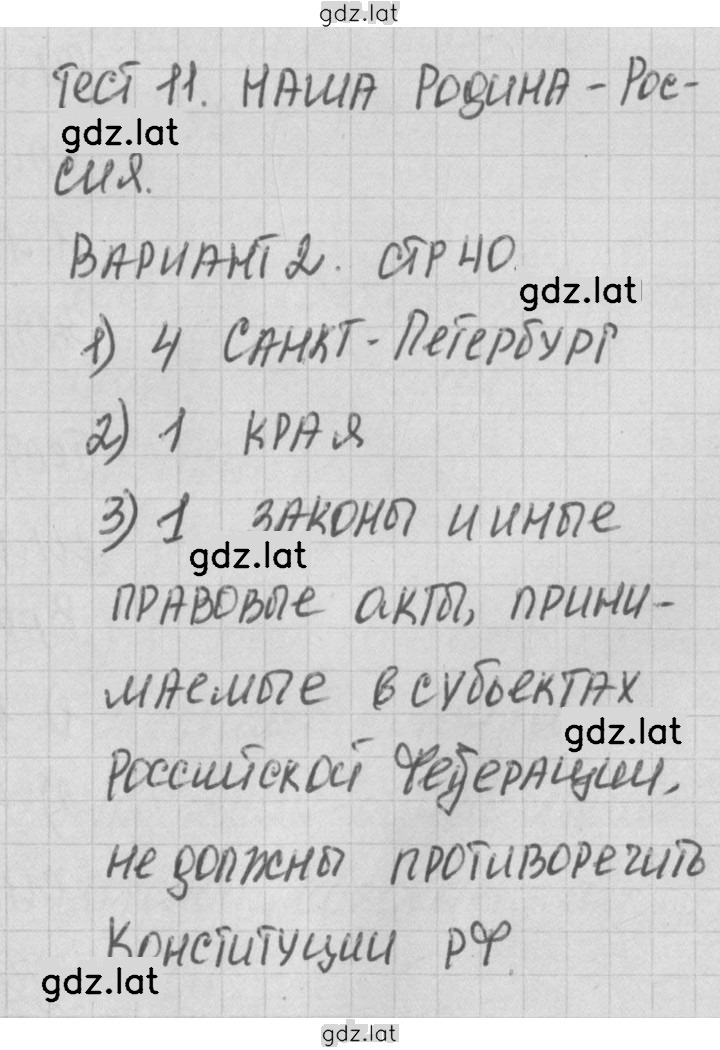 gdz.lat
Тест 11. НАША РОДИНА - Рос-
gdz.lat
сия.
ВАРИАНТ 2. СТР 40.
gdz.lat
1) 4 САНКТ-Петербург
2) 1 КРАЯ
3) 1 ЗАКОНЫ И ИНЫЕ
gdz.lat
ПРАВОВЫЕ АКТЫ, ПРИНИ-
МАЕМЫЕ В СУБЪЕКТАХ
gdz.lat
РОССИЙСКОЙ ФЕДЕРАЦИИ,
НЕ ДОЛЖНЫ ПРОТИВОРЕЧИТЬ
КОНСТИТУЦИИ РФ.
gdz.lat
gdz.lat